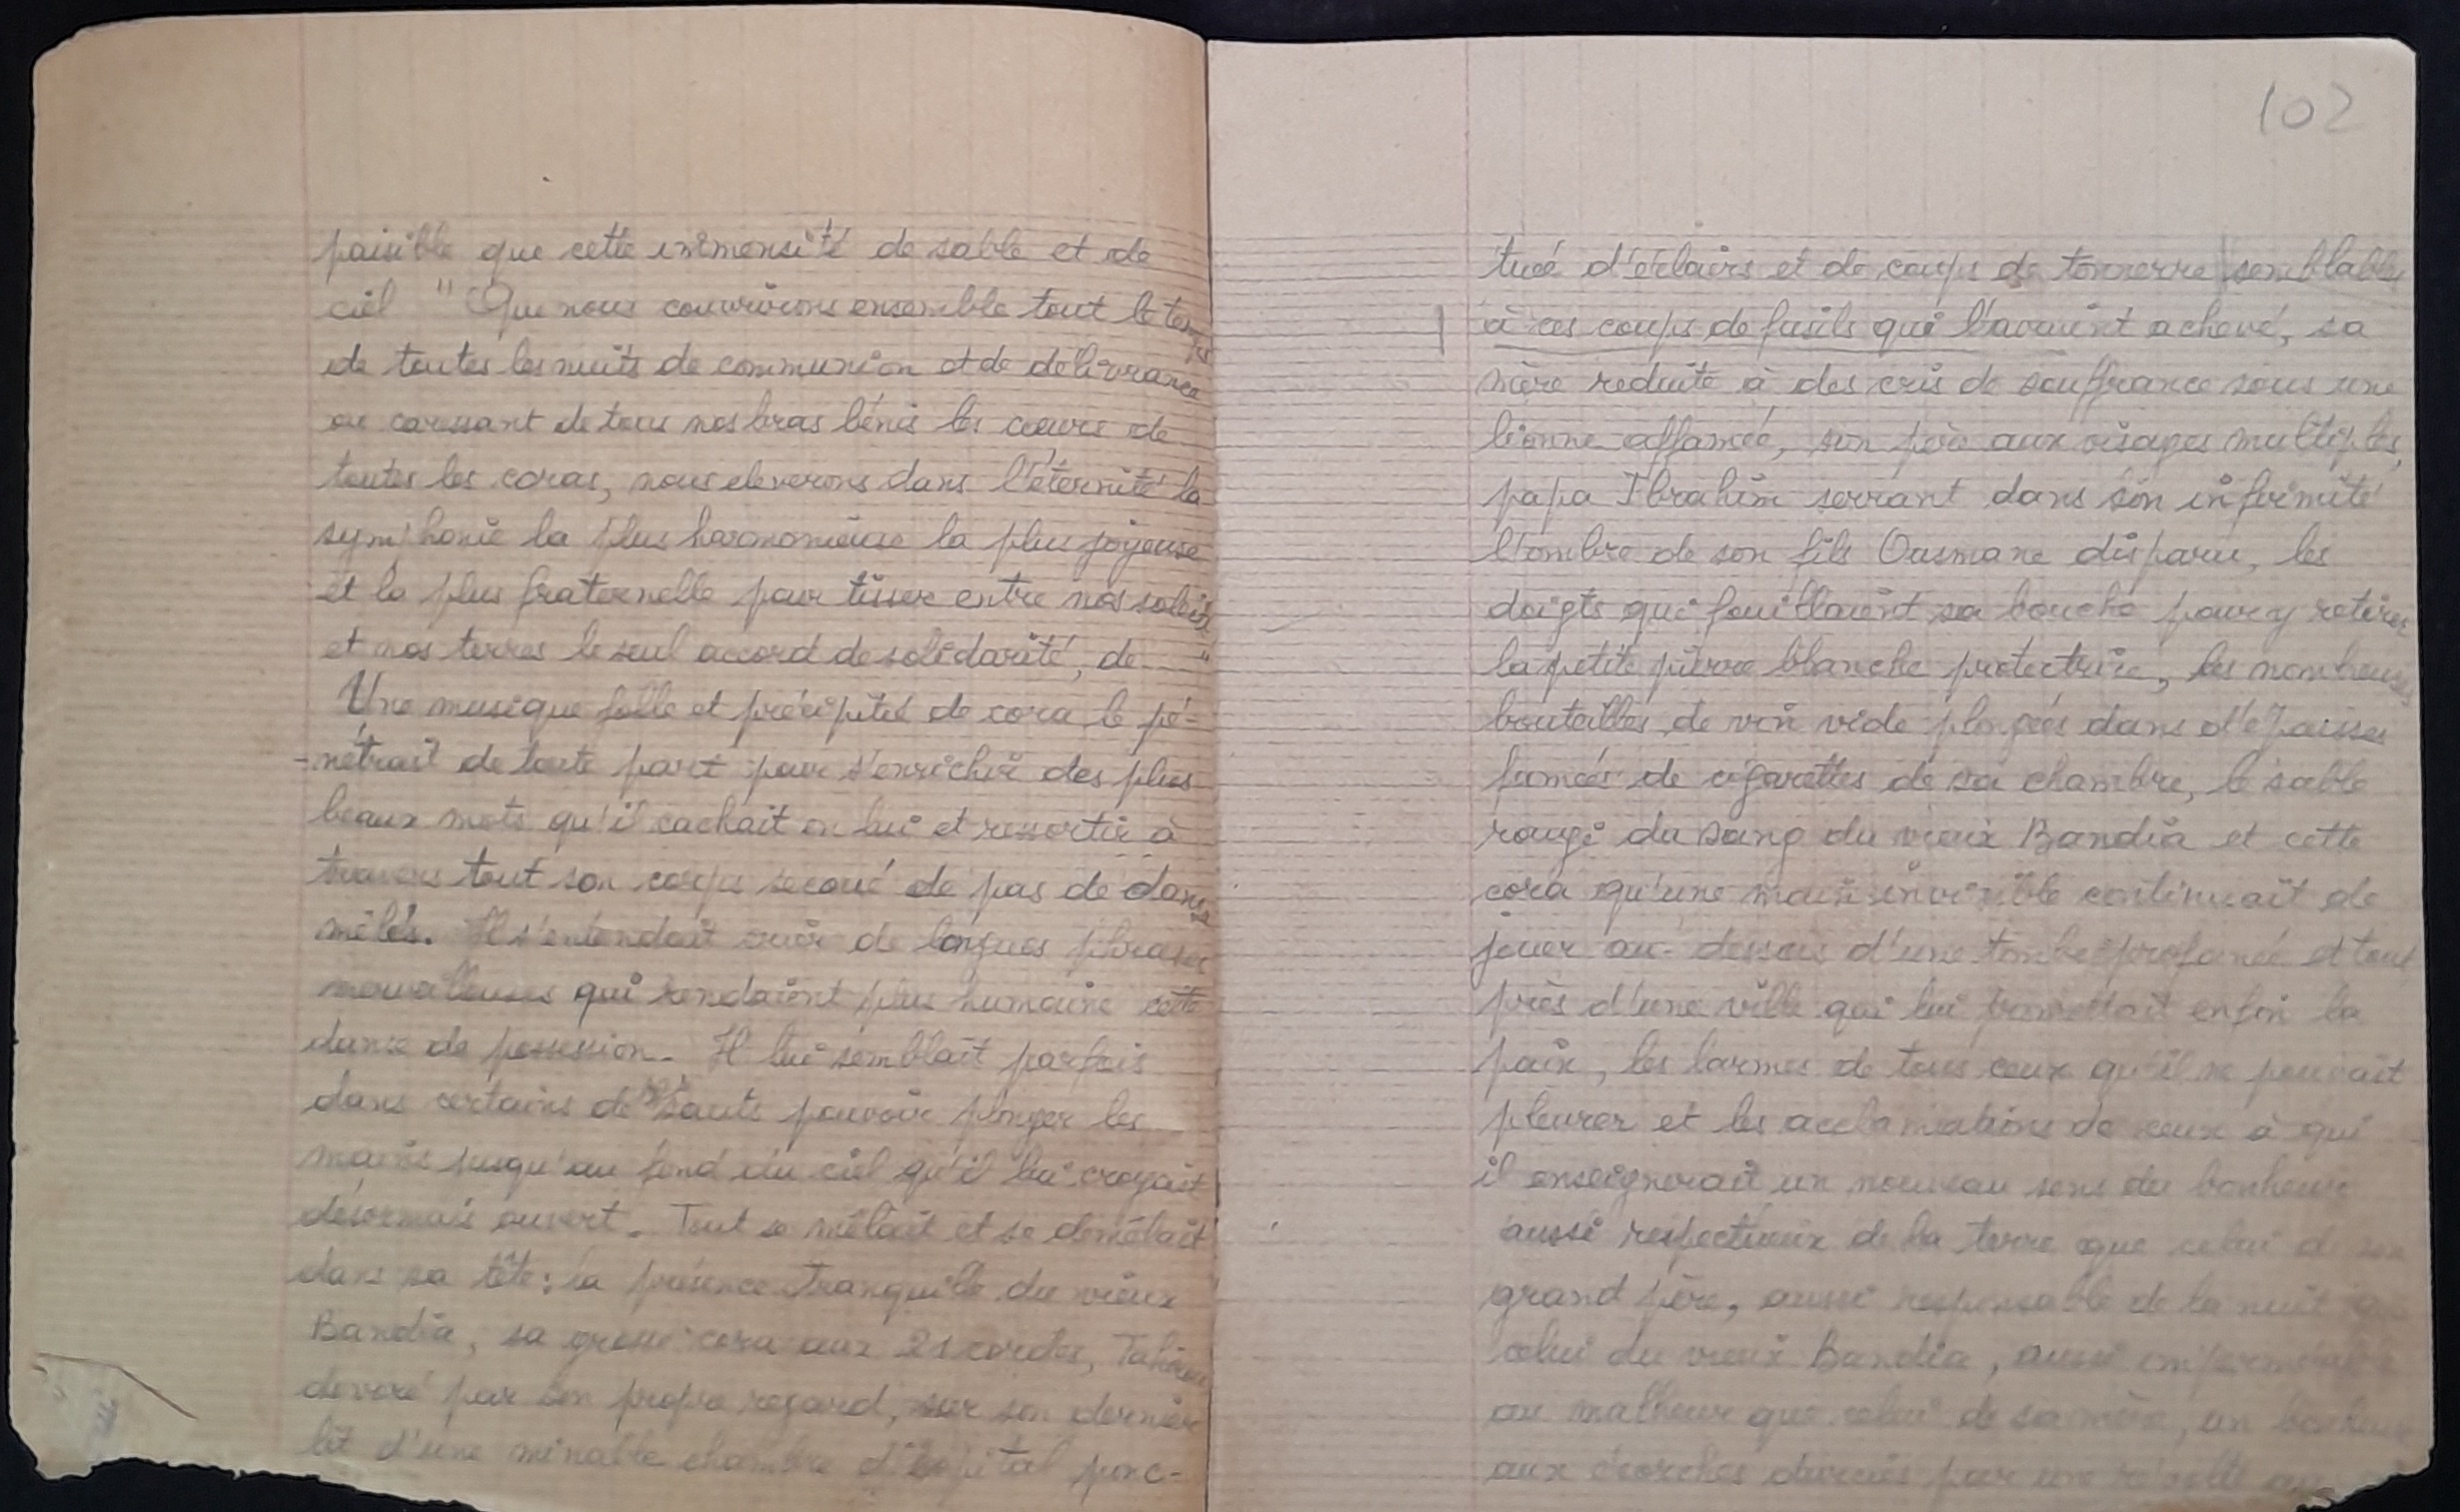 paisible que cette immensité de sable et de
ciel " Que nous couvrirons ensemble tout le temps
de toutes les nuits de communion et de délivrance
où caressant de tous nos bras bénis les cœurs de
toutes les coras, nous eleverons dans l'éternité la
symphonie la plus harmonieuse la plus joyeuse
et la plus fraternelle pour tisser entre nos soleils
et nos terres le seul accord de solidarité, de "
Une musique folle et précipitée de cora le pé-
-nétrait de toute part pour s'enrichir des plus
beaux mots qu'il cachait en lui et ressortir à
travers tout son corps secoué de pas de danse
mêlés. Il s'entendait crier de longues phrases
merveilleuses qui rendaient plus humaine cette
danse de possession. Il lui semblait parfois
dans certains de ses sauts pouvoir plonger les
mains jusqu'au fond du ciel qu'il lui croyait
désormais ouvert. Tout se mêlait et se démêlait
dans sa tête : la présence tranquille du vieux
Bandia, sa grosse cora aux 21 cordes,
dévoré par son propre regard, sur son dernier
lit d'une minable chambre d'hopital ponc-
102
tuée d'éclairs et de coups de tonnerre semblables
à ces coups de fusils qui l'avaient achevé, sa
mère reduite à des cris de souffrance sous une
lionne affamée, son père aux visages multiples,
papa Ibrahim serrant dans son infirmité
l'ombre de son fils Ousmane disparu, les
doigts qui fouillaient sa bouche pour y retirer
la petite pierre blanche protectrice, les nombreuses
bouteilles de vin vide plongées dans d'épaisses
fumées de cigarettes de sa chambre, le sable
rougi du sang du vieux Bandia et cette
cora qu'une main invisible continuait de
jouer au-dessus d'une tombe profanée et tout
près d'une ville qui lui promettait enfin la
paix, les larmes de tous ceux qu'il ne pouvait
pleurer et les acclamations de ceux à qui
il enseignerait un nouveau sens du bonheur
aussi respectueux de la terre que celui de son
grand père, aussi responsable de la nuit que
celui du vieux Bandia, aussi imperméable
au malheur que celui de sa mère, un bonheur
aux écorches durcies par une révolte